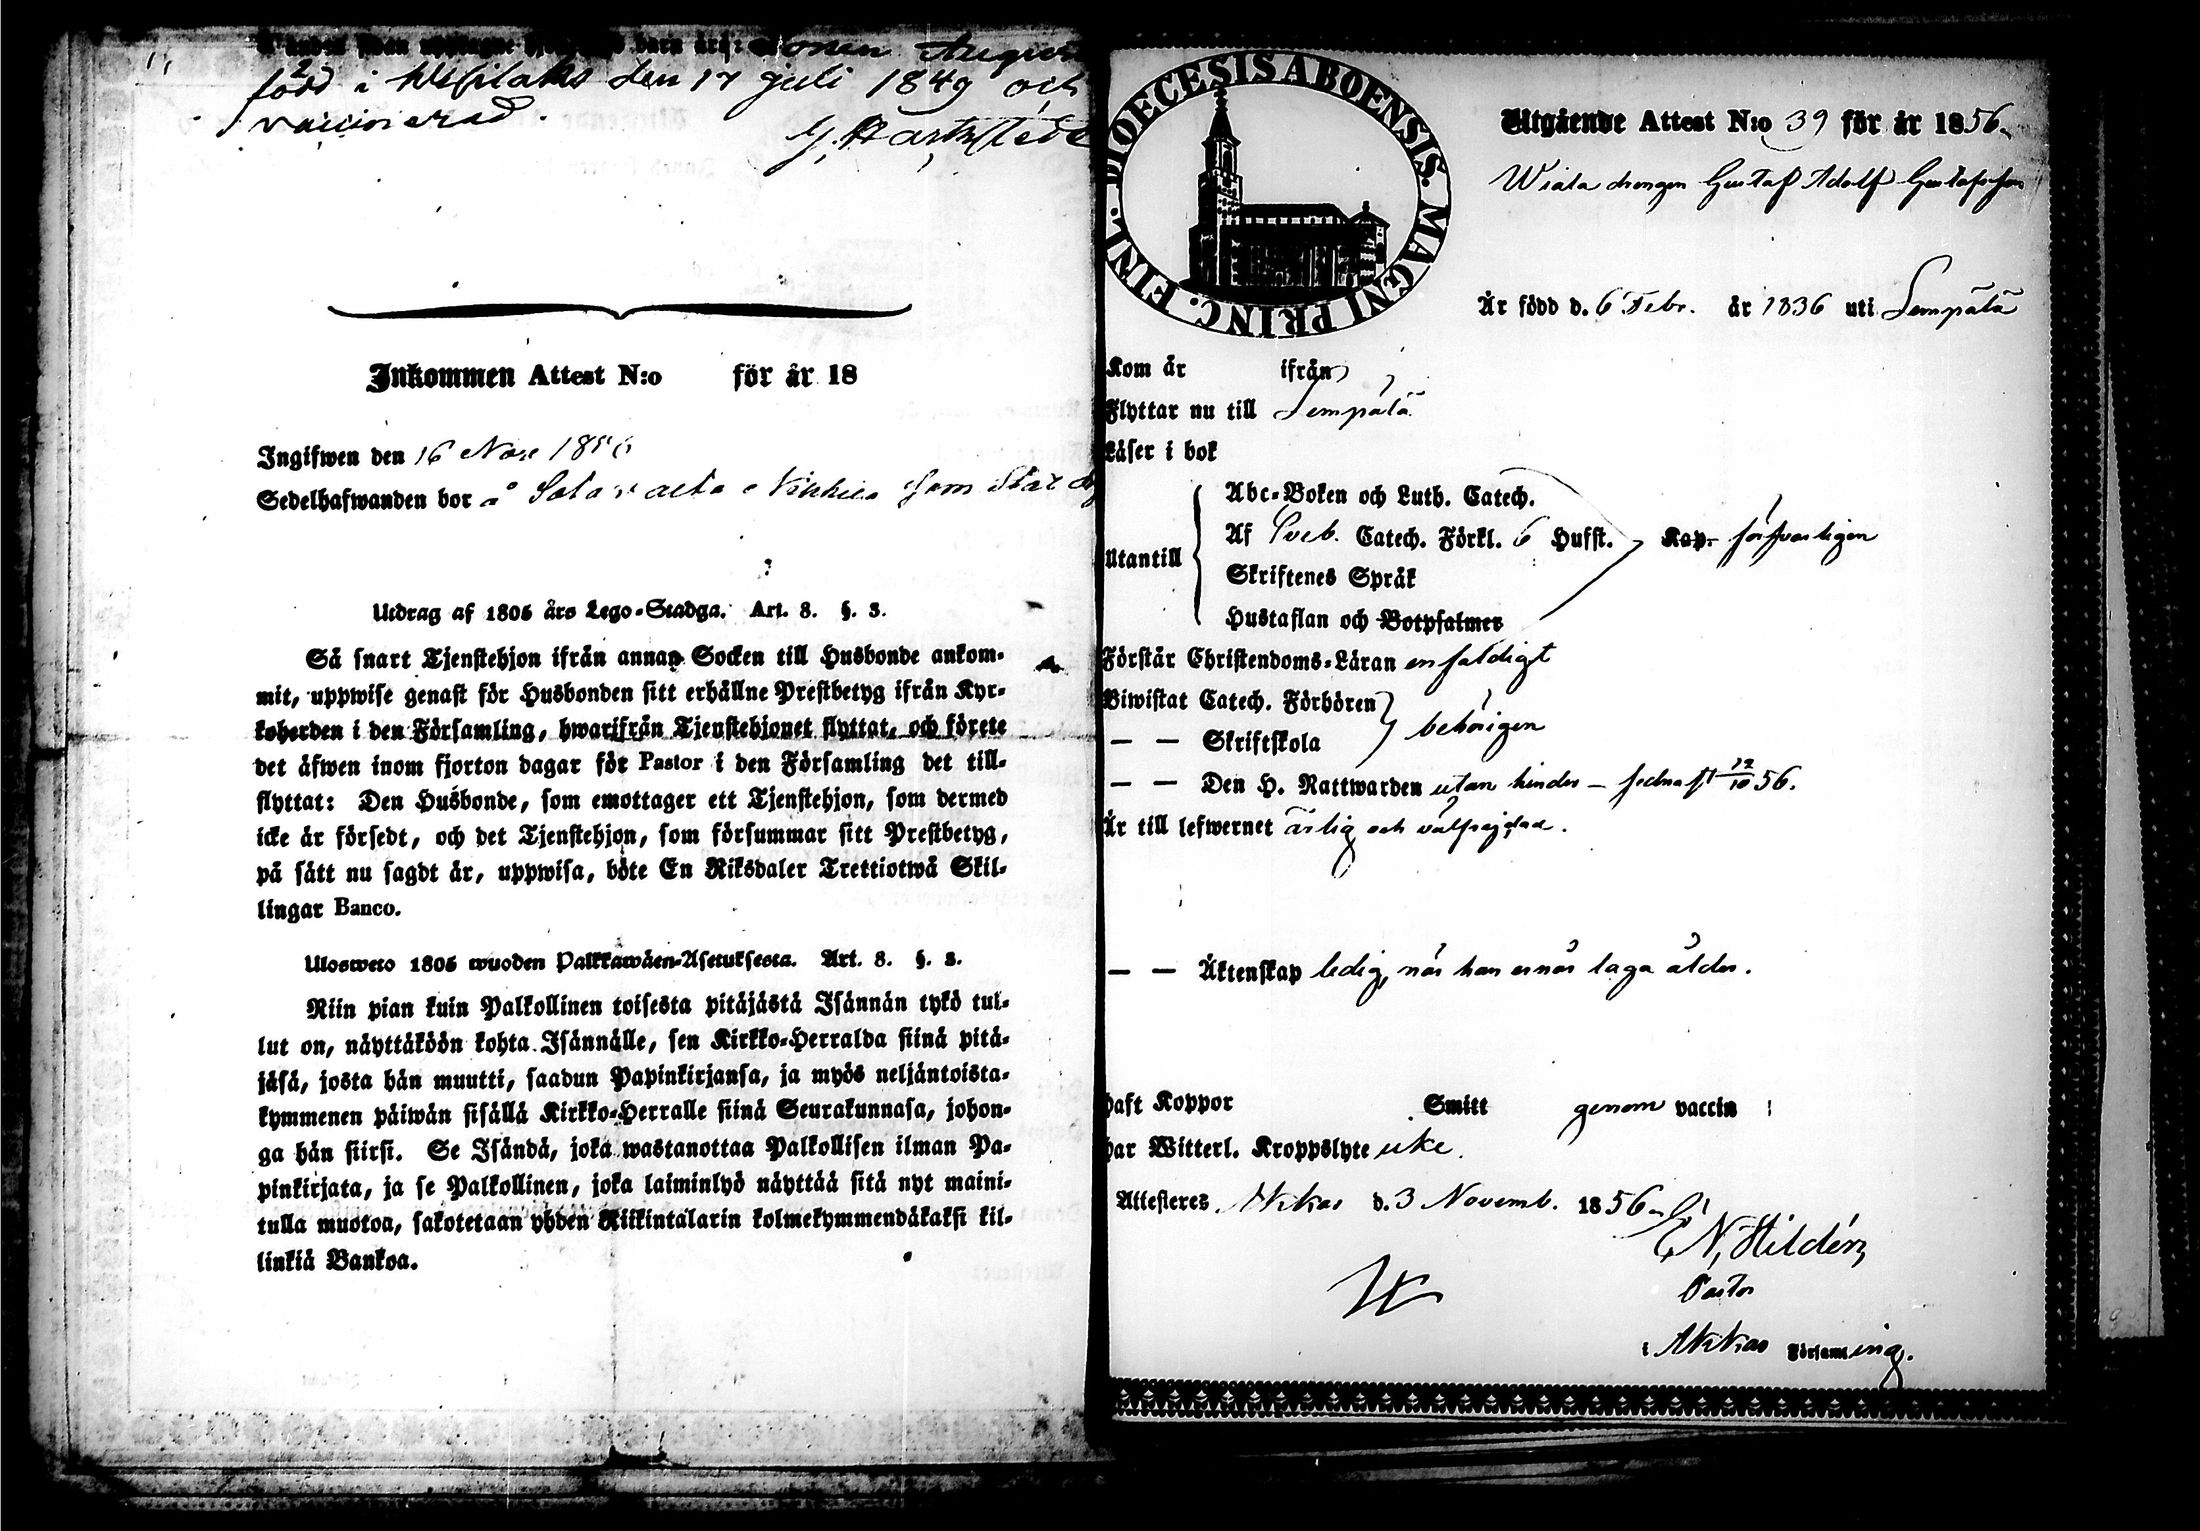 barn är: Sonen August
född i Wesilaks den 17 juli 1849 och
vaccinerad.
Inkommen Attest N:o för år 18
Ingifwen den 16 Nov 1856
Sedelhafwanden bor å som
Utdrag af 1805 års Lego-Stadga. Art. 8. §. 3.
Så snart Tjenstehjon ifrån annan Socken till Husbonde ankom-
mit, uppwise genast för Husbonden sitt erhållne Prestbetyg ifrån Kyr-
koherden i den Församling, hwarifrån Tjenstehjonet flyttat, och förete
det äfwen inom fjorton dagar för Pastor i den Församling det till-
flyttat: Den Husbonde, som emottager ett Tjenstehjon, som dermed
icke är försedt, och det Tjenstehjon, som försummar sitt Prestbetyg,
på sätt nu sagdt är, uppwisa, böte En Riksdaler Trettiotwå Skil-
lingar Banco.
Ulosweto 1805 wuoden Palkkawäen-Asetuksesta. Art. 8. §. 3.
Niin pian kuin Palkollinen toisesta pitäjästä Isännän tykö tul-
lut on, näyttäköön kohta Isännälle, sen Kirkko-Herralda siinä pitä-
jäsä, josta hän muutti, saadun Papinkirjansa, ja myös neljäntoista-
kymmenen päiwän sisällä Kirkko-Herralle siinä Seurakunnasa, johon-
ga hän siirsi. Se Isändä, joka wastanottaa Palkollisen ilman Pa-
pinkirjata, ja se Palkollinen, joka laiminlyö näyttää sitä nyt maini-
tulla muotoa, sakotetaan yhden Riikintalarin kolmekymmendäkaksi kil-
linkiä Bankoa.
DIOECESIS ABOENSIS. MAGNI PRINC. FINL.
Utgående Attest N:o 39 för år 1856
Wiala drengen Gustaf Adolf Gustafsson
Är född d. 6 Febr. år 1836 uti Lempälä
Kom år ifrån
Flyttar nu till Lempälä
Läser i bok
Utantill
Abc-Boken och Luth. Catech.
Af Sveb. Catech. Förkl. 6 Hufst. Kap. försvarligen
Skriftenes Språk
Hustaflan och Botpsalmer
Förstår Christendoms-Läran enfaldigt
Biwistat Catech. Förhören
— — Skriftskola behörigen
— — Den H. Nattwarden utan hinder – sednast 12/10 56.
Är till lefwernet ärlig och välfrejdad.
— — Äktenskap ledig, när han ernår laga ålder.
haft Koppor Smitt genom vaccin
har Witterl. Kroppslyte icke.
Attesteres Akkas d. 3 Novemb. 1856
E N, Hildén
Pastor
i Akkas Församling.